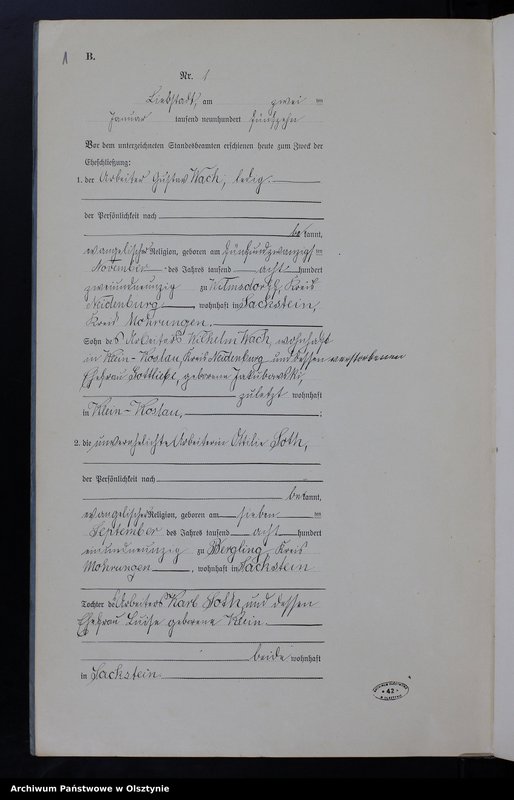 1 B.
Nr. 1
Liebstadt, am zwei ten
Januar tausend neunhundert fünfzehn
Vor dem unterzeichneten Standesbeamten erschienen heute zum Zweck der
Eheschließung:
1. der Arbeiter Gustav Wach, ledig.
der Persönlichkeit nach
be kannt,
evangelischer Religion, geboren am fünfundzwanzigsten
November des Jahres tausend acht hundert
zweiundneunzig zu Wilmsdorf, Kreis
Neidenburg, wohnhaft in Sackstein,
Kreis Mohrungen.
Sohn des Arbeiters Wilhelm Wach, wohnhaft
in Klein-Koslau, Kreis Neidenburg und dessen verstorbenen
Ehefrau Gottliebe, geborene Jakubowski,
zuletzt wohnhaft
in Klein-Koslau, ;
2. die unverehelichte Arbeiterin Ottilie Soth,
der Persönlichkeit nach
be kannt,
evangelischer Religion, geboren am sieben ten
September des Jahres tausend acht hundert
einundneunzig zu Bergling Kreis
Mohrungen, wohnhaft in Sackstein
Tochter des Arbeiters Karl Soth und dessen
Ehefrau Luise geborene Klein.
beide wohnhaft
in Sackstein.
42
Archiwum Państwowe w Olsztynie